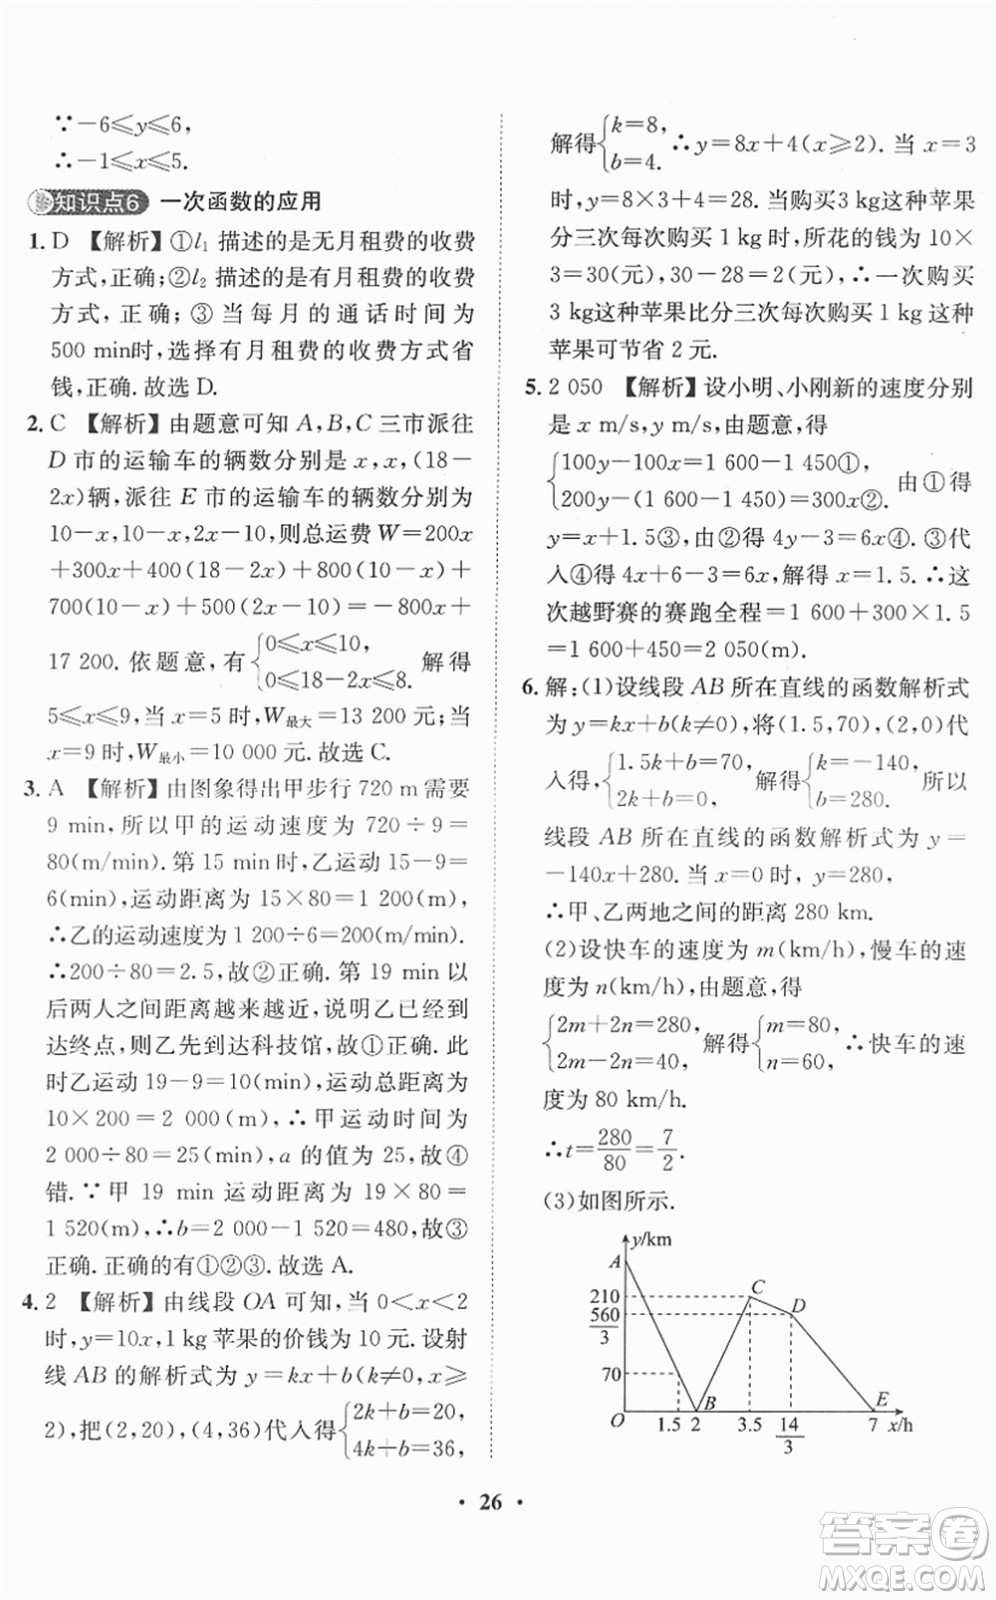 ∵－6⩽y⩽6,
∴－1⩽x⩽5.
知识点6 一次函数的应用
1. D 【解析】①l₁ 描述的是无月租费的收费
方式,正确;②l₂ 描述的是有月租费的收费
方式,正确;③当每月的通话时间为
500 min时,选择有月租费的收费方式省
钱,正确.故选 D.
2. C 【解析】由题意可知 A,B,C 三市派往
D 市的运输车的辆数分别是 x,x,(18－
2x)辆,派往 E 市的运输车的辆数分别为
10－x,10－x,2x－10,则总运费 W＝200x
＋300x＋400(18－2x)＋800(10－x)＋
700(10－x)＋500(2x－10)＝－800x＋
17 200. 依题意,有{0⩽x⩽10, 0⩽18－2x⩽8. 解得
5⩽x⩽9,当 x＝5 时,W最大＝13 200 元;当
x＝9 时,W最小＝10 000 元.故选 C.
3. A 【解析】由图象得出甲步行 720 m 需要
9 min,所以甲的运动速度为 720÷9＝
80(m/min).第 15 min 时,乙运动 15－9＝
6(min),运动距离为 15×80＝1 200(m),
∴乙的运动速度为 1 200÷6＝200(m/min).
∴200÷80＝2.5,故②正确.第 19 min 以
后两人之间距离越来越近,说明乙已经到
达终点,则乙先到达科技馆,故①正确.此
时乙运动 19－9＝10(min),运动总距离为
10×200＝2 000(m),∴甲运动时间为
2 000÷80＝25(min),a 的值为 25,故④
错.∵甲 19 min 运动距离为 19×80＝
1 520(m),∴b＝2 000－1 520＝480,故③
正确.正确的有①②③.故选 A.
4. 2 【解析】由线段 OA 可知,当 0＜x＜2
时,y＝10x,1 kg 苹果的价钱为 10 元.设射
线 AB 的解析式为 y＝kx＋b(k≠0,x⩾
2),把(2,20),(4,36)代入得{2k＋b＝20, 4k＋b＝36,
解得{k＝8, b＝4. ∴y＝8x＋4(x⩾2).当 x＝3
时,y＝8×3＋4＝28.当购买 3 kg这种苹果
分三次每次购买 1 kg 时,所花的钱为 10×
3＝30(元),30－28＝2(元),∴一次购买
3 kg这种苹果比分三次每次购买 1 kg 这种
苹果可节省 2 元.
5. 2 050 【解析】设小明、小刚新的速度分别
是 x m/s,y m/s,由题意,得
{100y－100x＝1 600－1 450①, 200y－(1 600－1 450)＝300x②. 由①得
y＝x＋1.5③,由②得 4y－3＝6x④. ③代
入④得 4x＋6－3＝6x,解得 x＝1.5. ∴这
次越野赛的赛跑全程＝1 600＋300×1.5
＝1 600＋450＝2 050(m).
6. 解:(1)设线段 AB 所在直线的函数解析式
为 y＝kx＋b(k≠0),将(1.5,70),(2,0)代
入得,{1.5k＋b＝70, 2k＋b＝0, 解得{k＝－140, b＝280. 所以
线段 AB 所在直线的函数解析式为 y＝
－140x＋280.当 x＝0 时,y＝280,
∴甲、乙两地之间的距离 280 km.
(2)设快车的速度为 m(km/h),慢车的速
度为 n(km/h),由题意,得
{2m＋2n＝280, 2m－2n＝40, 解得{m＝80, n＝60. ∴快车的速
度为 80 km/h.
∴t＝280/80＝7/2.
(3)如图所示.
y/km
A
210
560/3
70
C
D
B
E
O 1.5 2 3.5 14/3 7 x/h
• 26 •
答案卷
MXQE.COM